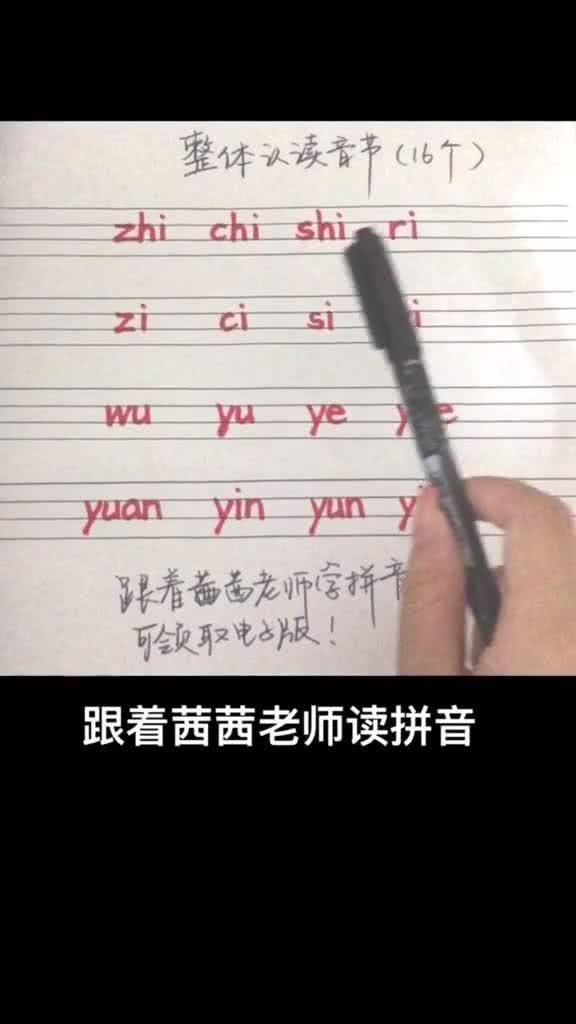 整体认读音节(16个)
zhi chi shi ri
zi ci si
wu yu ye
yuan yin yun
跟着茜茜老师学拼音
可领取电子版!
跟着茜茜老师读拼音